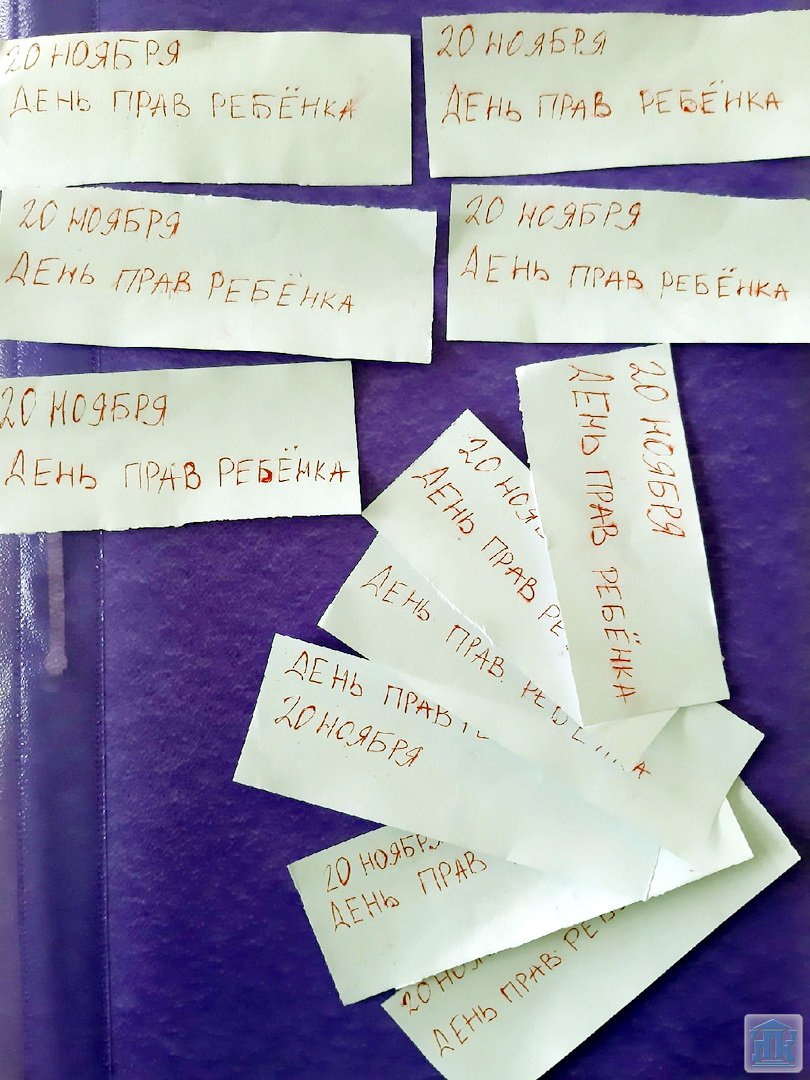 20 НОЯБРЯ
ДЕНЬ ПРАВ РЕБЁНКА
20 НОЯБРЯ
ДЕНЬ ПРАВ РЕБЁНКА
20 НОЯБРЯ
ДЕНЬ ПРАВ РЕБЁНКА
20 НОЯБРЯ
ДЕНЬ ПРАВ РЕБЁНКА
20 НОЯБРЯ
ДЕНЬ ПРАВ РЕБЁНКА
20 НОЯБРЯ
ДЕНЬ ПРАВ РЕБЁНКА
20
ДЕНЬ ПРАВ
ДЕНЬ ПРАВ
ДЕНЬ ПРАВ
20 НОЯБРЯ
20 НОЯБРЯ
ДЕНЬ ПРАВ
20
ДЕНЬ ПРАВ